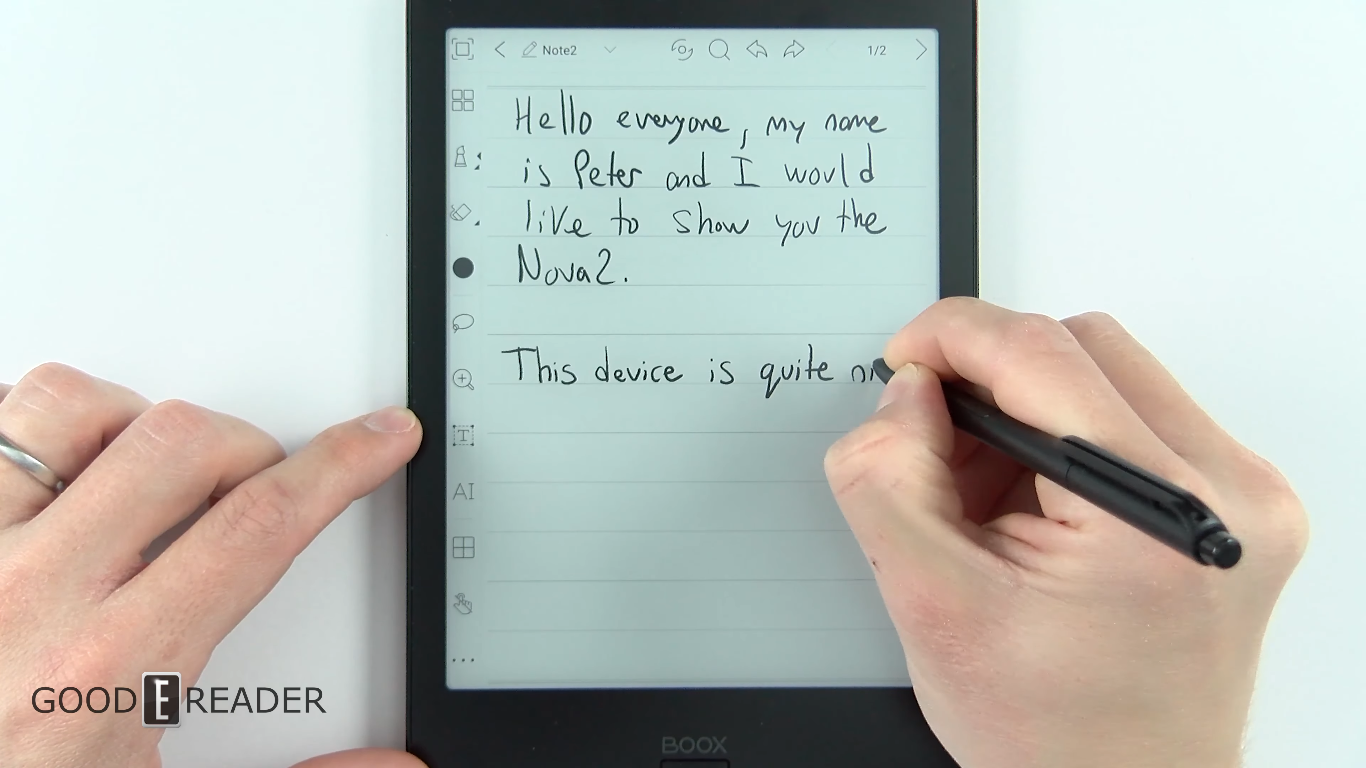 Note2
1/2
Hello everyone, my name
is Peter and I would
like to show you the
Nova2.
This device is quite
AI
GOOD E READER
BOOX